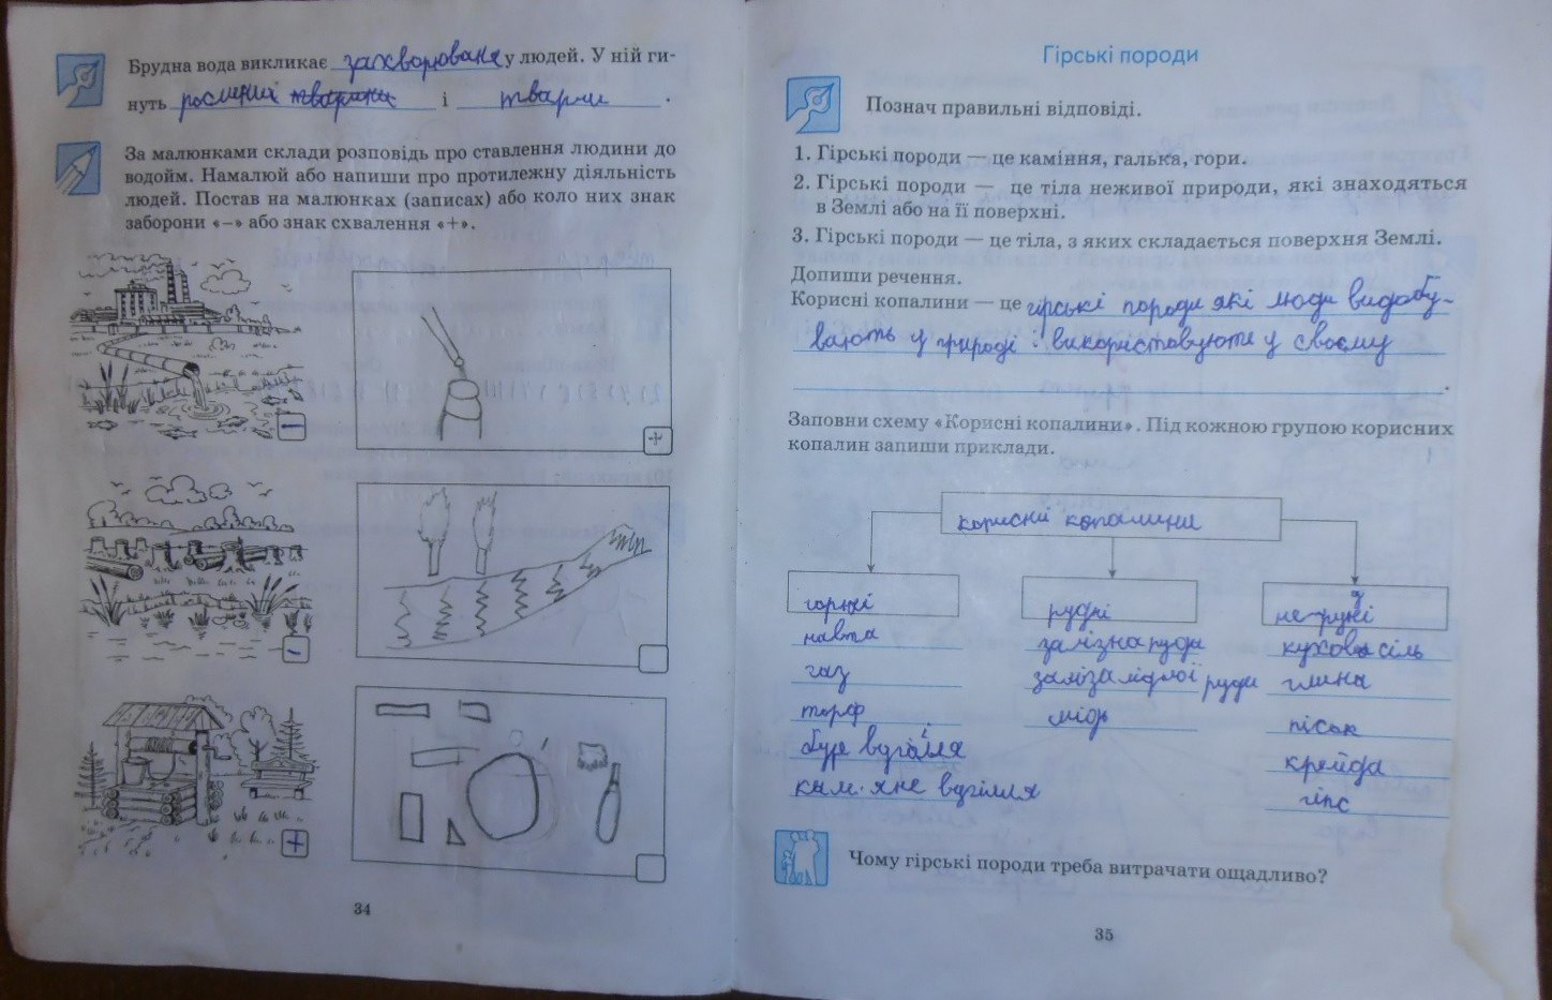 Брудна вода викликає захворюваня у людей. У ній ги-
нуть рослини тварини і тварин .
За малюнками склади розповідь про ставлення людини до
водойм. Намалюй або напиши про протилежну діяльність
людей. Постав на малюнках (записах) або коло них знак
заборони «–» або знак схвалення «+».
–
+
–
+
34
Гірські породи
Познач правильні відповіді.
1. Гірські породи — це каміння, галька, гори.
2. Гірські породи — це тіла неживої природи, які знаходяться
в Землі або на її поверхні.
3. Гірські породи — це тіла, з яких складається поверхня Землі.
Допиши речення.
Корисні копалини — це гірські породи які люди видобу-
вають у природі і використовують у своєму
.
Заповни схему «Корисні копалини». Під кожною групою корисних
копалин запиши приклади.
корисні копалини
горючі рудні не рудні
навта залізна руда кухова сіль
газ заліза мідної руди глина
торф мідь пісок
буре вугілля крейда
кам. яне вугілля гіпс
Чому гірські породи треба витрачати ощадливо?
35